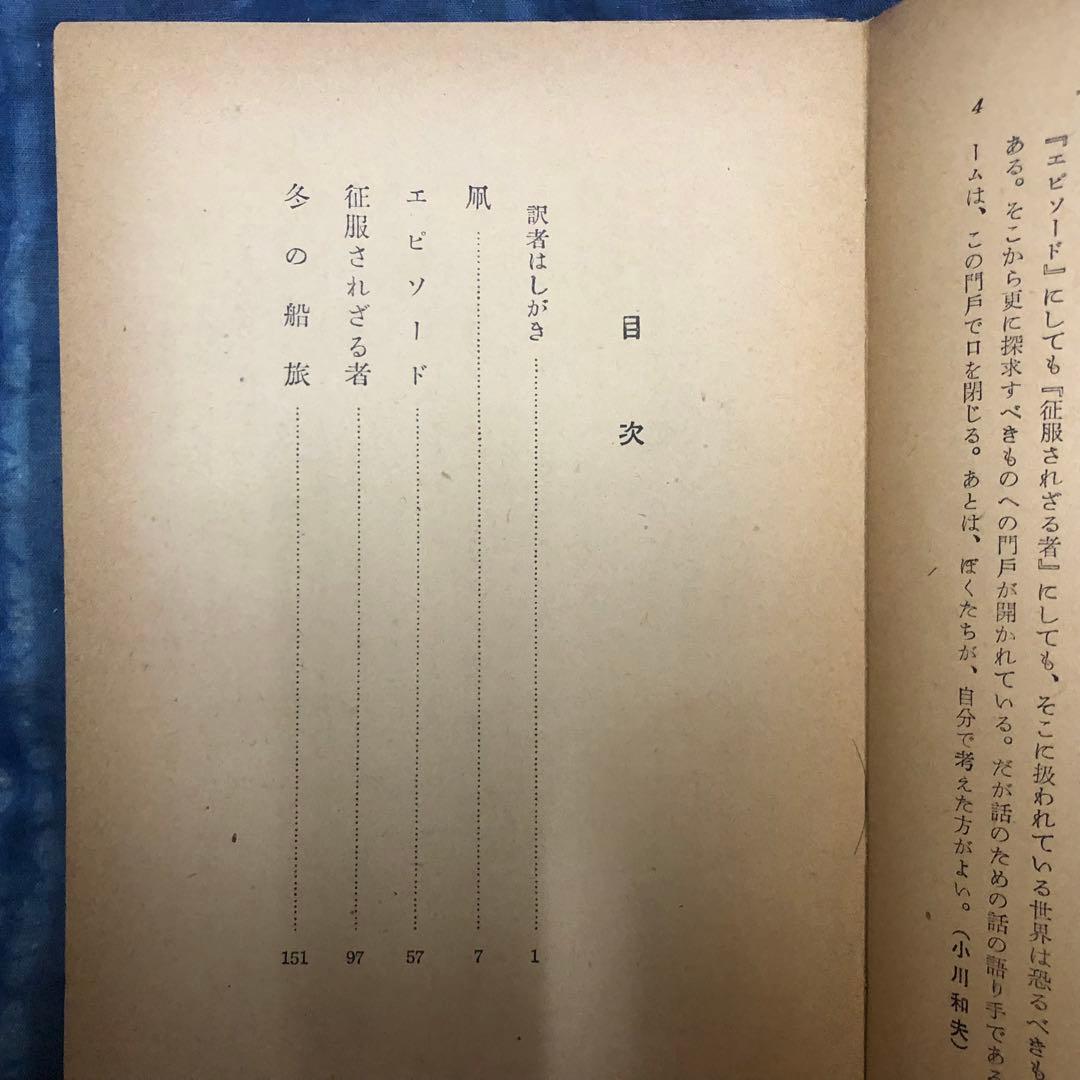 4
『エピソード』にしても『征服されざる者』にしても、そこに扱われている世界は恐るべきも
ある。そこから更に探求すべきものへの門戸が開かれている。だが話のための話の語り手である
ームは、この門戸で口を閉じる。あとは、ぼくたちが、自分で考えた方がよい。(小川和夫)
目次
訳者はしがき……1
凧……7
エピソード……57
征服されざる者……97
冬の船旅……151